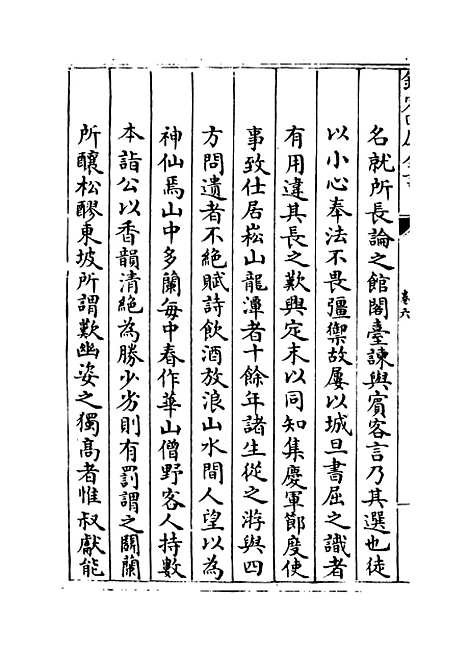 名就所長論之館閣臺諫與賓客言乃其選也徒
以小心奉法不畏彊禦故屢以城旦書屈之識者
有用違其長之歎興定末以同知集慶軍節度使
事致仕居崧山龍潭者十餘年諸生從之游與四
方問遺者不絶賦詩飲酒放浪山水間人望以為
神仙焉山中多蘭每中春作華山僧野客人持數
本詣公以香韻清絶為勝少劣則有罰謂之鬬蘭
所釀松醪東坡所謂歎幽姿之獨髙者惟叔獻能
卷六